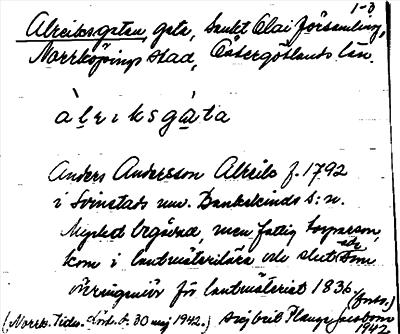 1-3
Alreiksgatan, gata, Sankt Olai församling,
Norrköpings stad, Östergötlands län.
àl̥eıksgàta
Anders Andersson Alreik f. 1792
i Svinstads nuv. Bankekinds s:n.
Mycket begåvad, men fattig torparson,
kom i lantmäterilära och slutade som
överingeniör för lantmäteriet 1836
(Norrk. Tidn. 30 maj 1942.)
1942